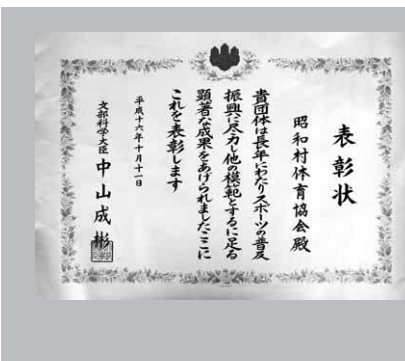 表彰状
昭和村体育協会殿
貴団体は長年にわたりスポーツの普及
振興に尽力し他の模範とするに足る
顕著な成果をあげられましたここに
これを表彰します
平成十六年十月十一日
文部科学大臣 中山成彬